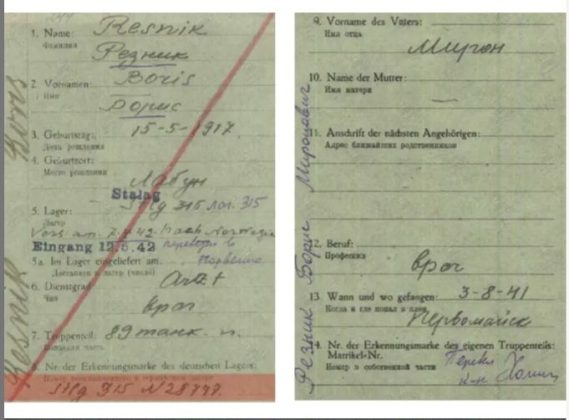 1. Name: Resnik
Фамилия
Резник
2. Vornamen: Boris
Имя
Борис
3. Geburtstag: 15-5-1917
День рождения
4. Geburtsort:
Место рождения
Лабун
Stalag
5. Lager: 315 лаг. 315
Лагерь
7.4.42 nach Norwegen
Eingang 12.5.42
Норвегию
5a. Im Lager eingeliefert am:
Доставлен в лагерь (число)
6. Dienstgrad: Arzt
Чин
врач
7. Truppenteil: 89 танк. п.
Войсковая часть
8. Nr. der Erkennungsmarke des deutschen Lagers:
315 N 28777.
Resnik Boris
9. Vorname des Vaters:
Имя отца
Мирон
10. Name der Mutter:
Имя матери
—
11. Anschrift der nächsten Angehörigen:
Адрес ближайших родственников
12. Beruf:
Профессия
врач
13. Wann und wo gefangen: 3-8-41
Когда и где попал в плен
Первомайск
14. Nr. der Erkennungsmarke des eigenen Truppenteils:
Matrikel-Nr.
Номер в собственной части
Резник Борис Миронович